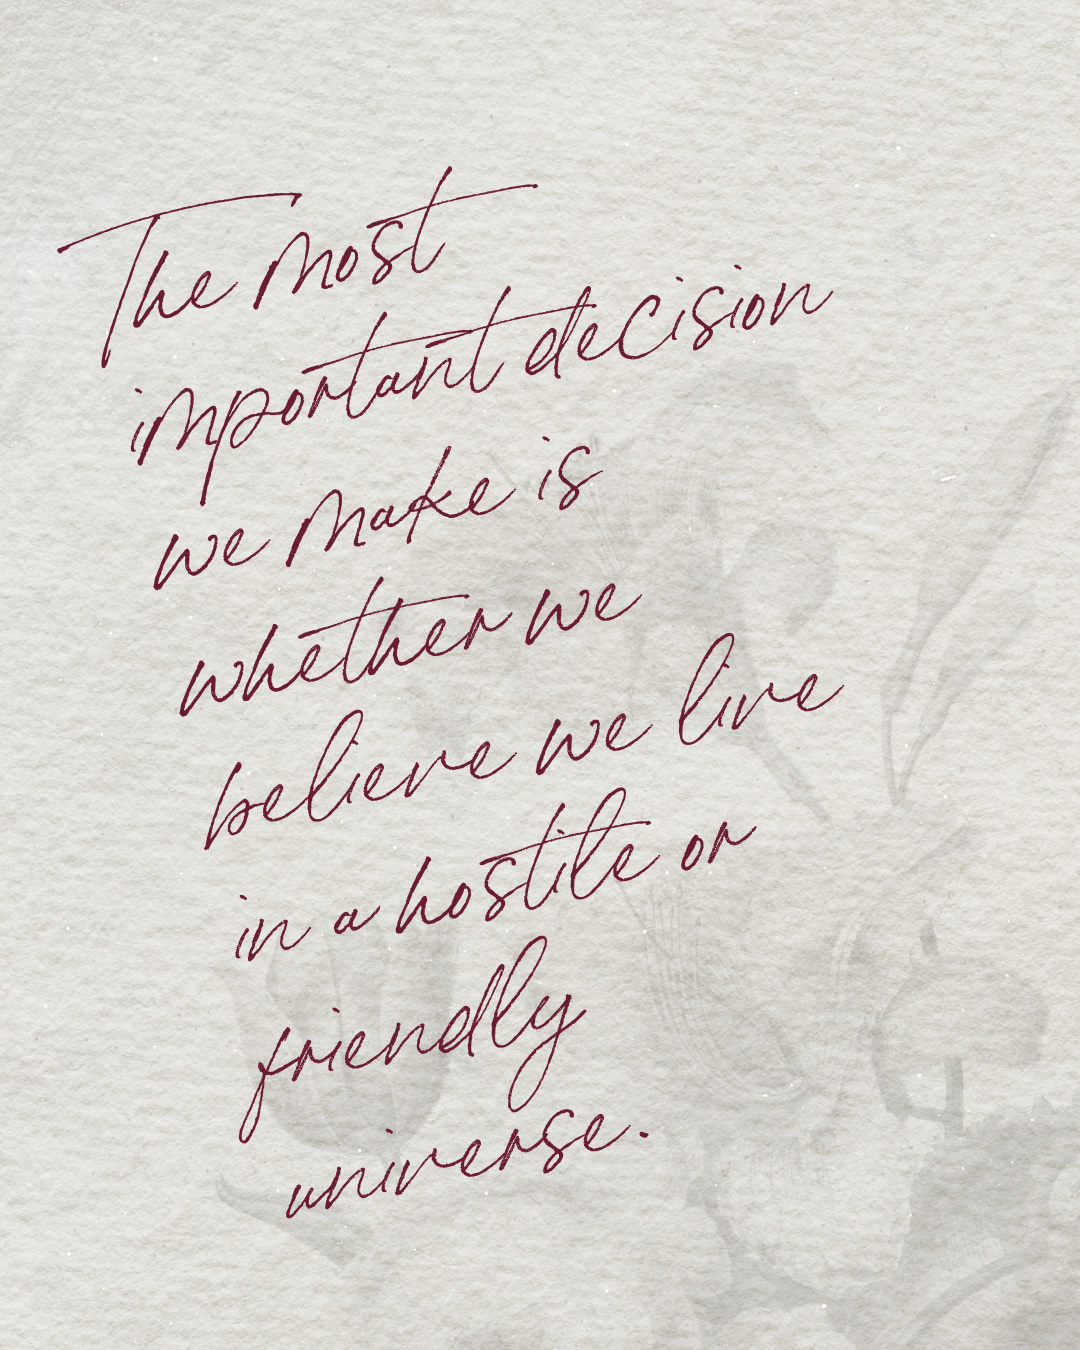 The most
important decision
we make is
whether we
believe we live
in a hostile or
friendly
universe.